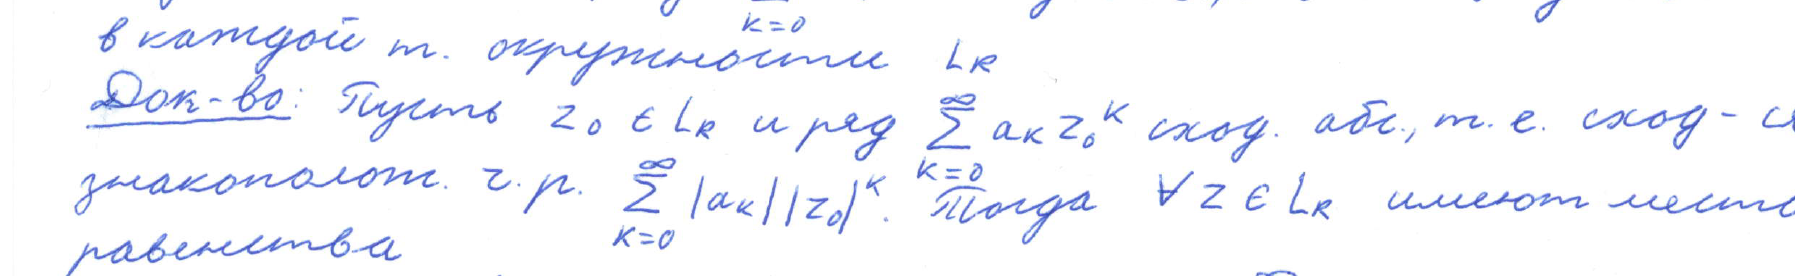 k=0
в каждой т. окружности L_R
Док-во: Пусть z_0 ∈ L_R и ряд ∑_{k=0}^{∞} a_k z_0^k сход. абс., т. е. сход-ся
знакополож. ч. р. ∑_{k=0}^{∞} |a_k||z_0|^k. Тогда ∀ z ∈ L_R имеют место
равенства